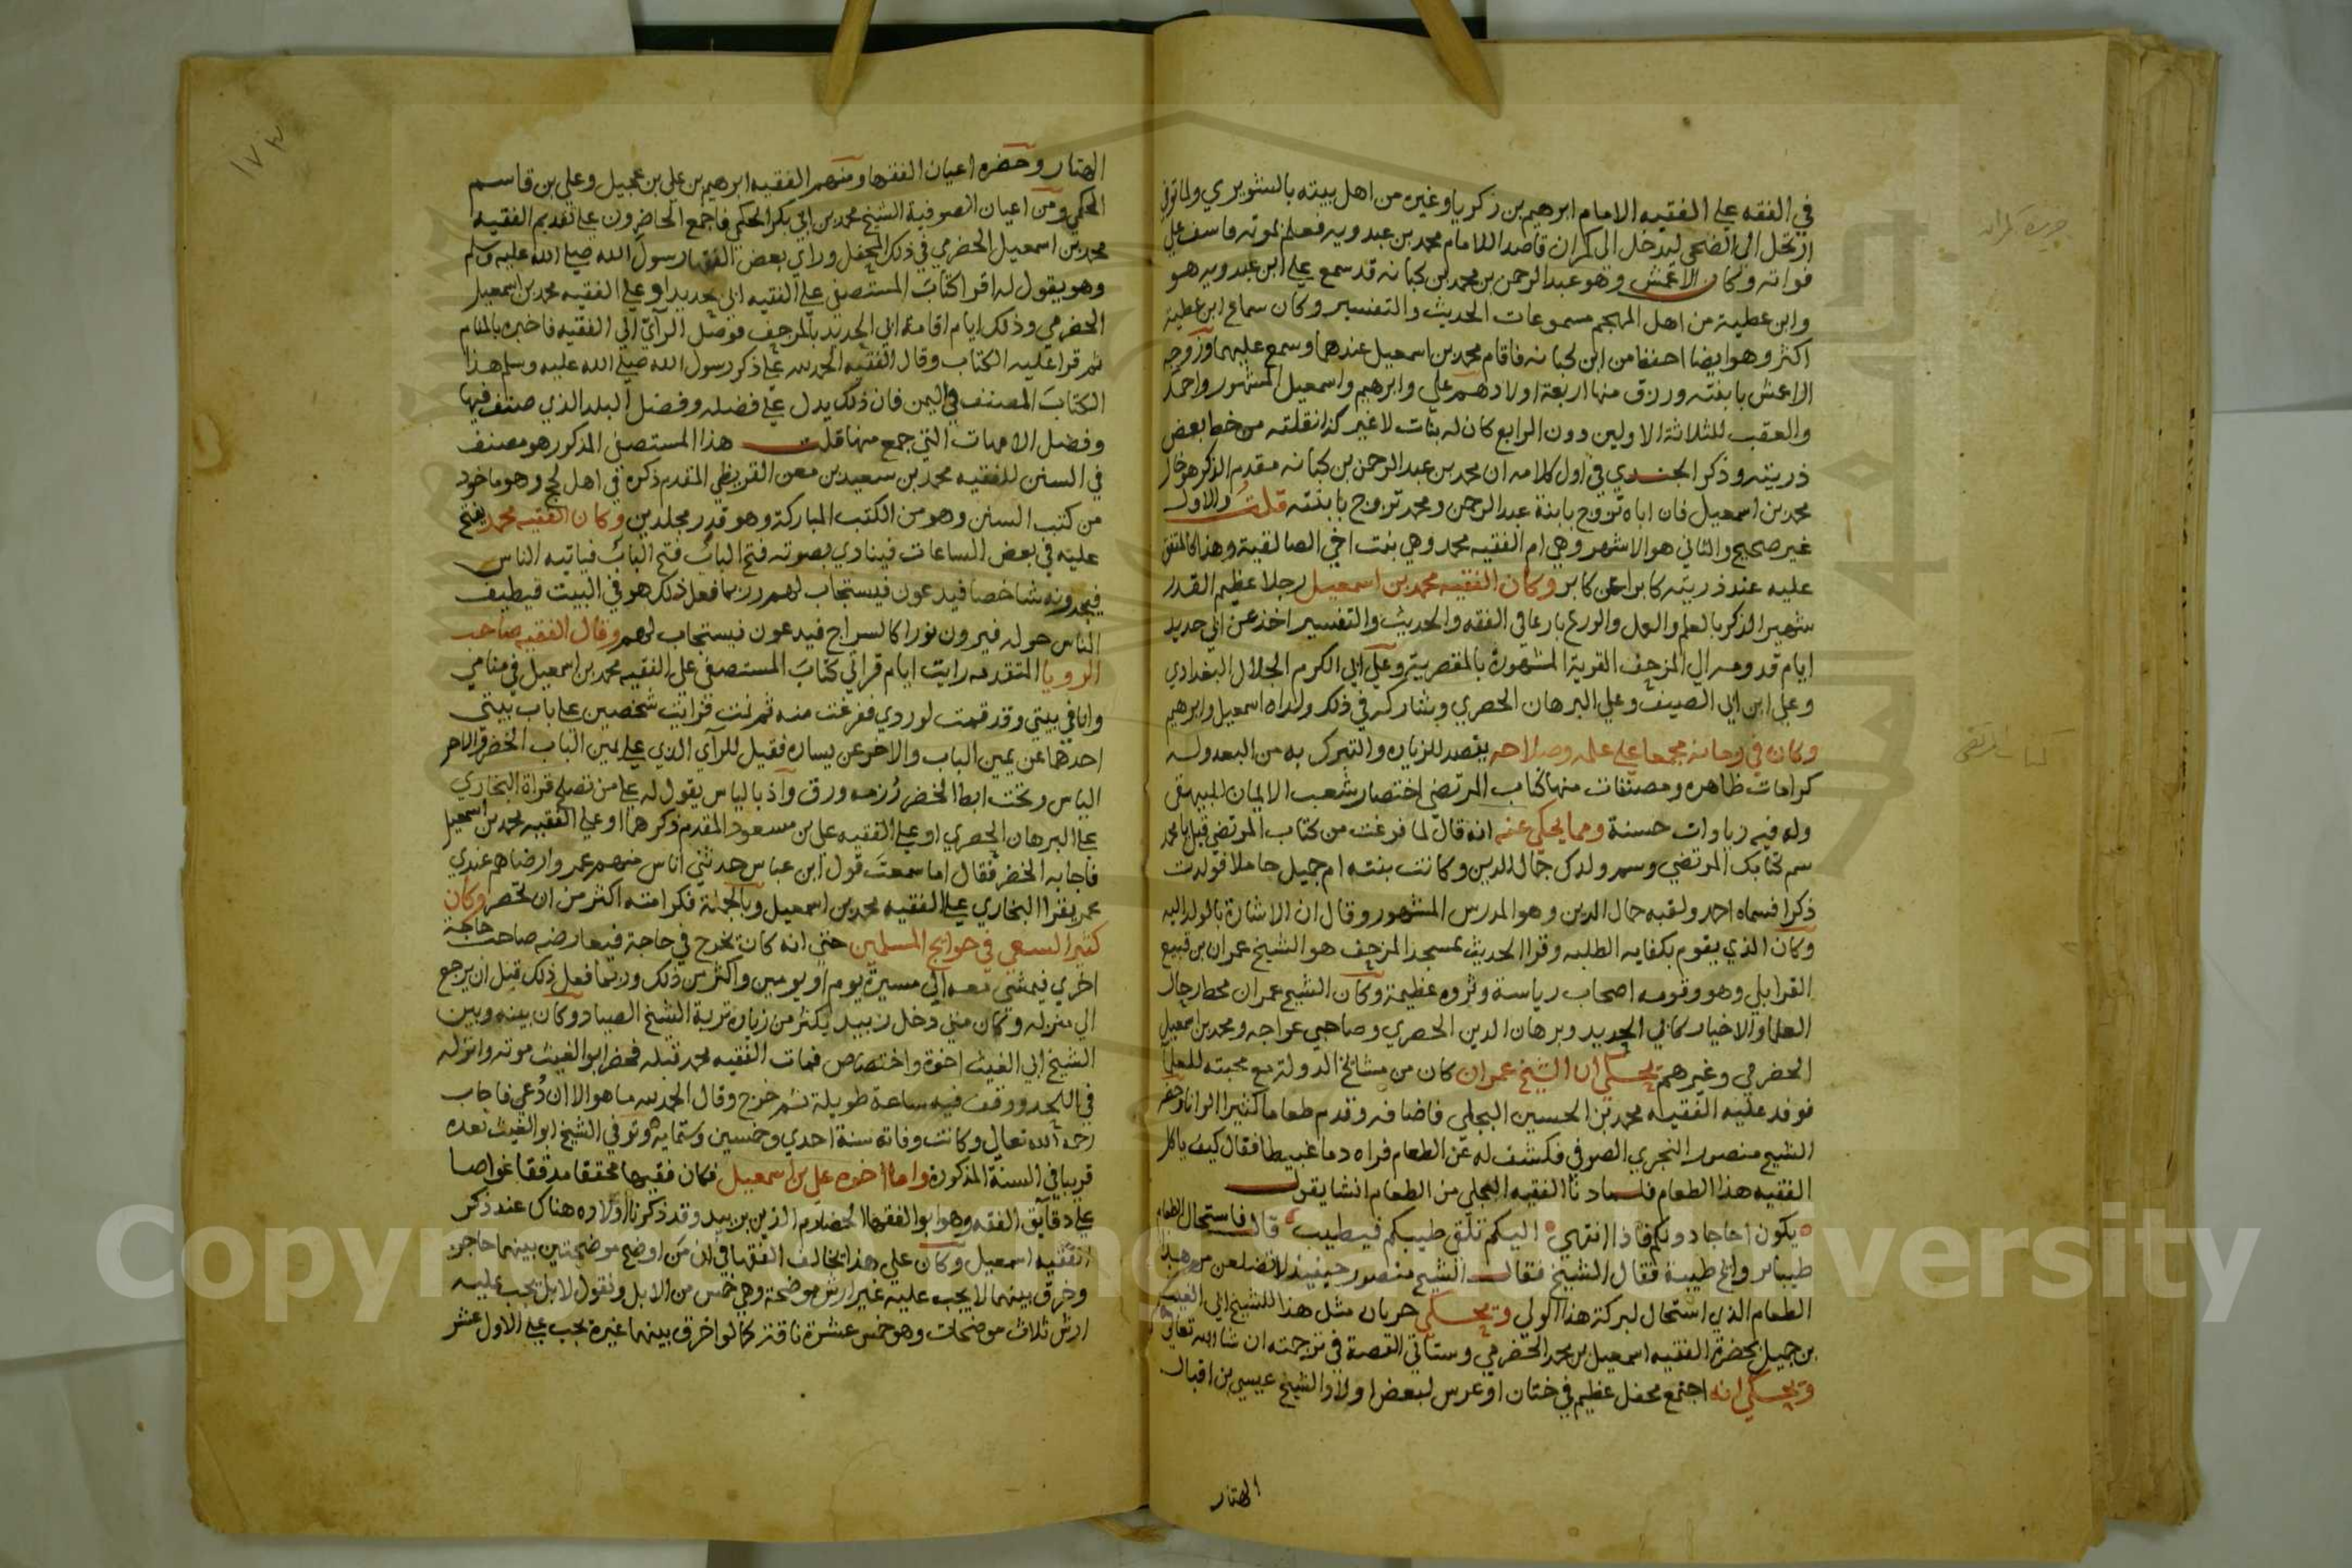 في الفقه علي الفقيه الامام ابرهيم بن زكريا وغيره من اهل بيته بالشويري ولما توفي
ارتحل الي الضحي ليدخل الي كمران قاصدا للامام محمد بن عبدويه فعلم بموته فاسف علي
فواته وكان الاعمش وهو عبد الرحمن بن محمد بن كبانه قد سمع علي ابن عبدويه هو
وابن عطية من اهل المهجم مسموعات الحديث والتفسير وكان سماع ابن عطية
اكثر وهو ايضا احفظ من ابن كبانه فاقام محمد بن اسمعيل عندهما وسمع عليهما وزوجه
الاعمش بابنته ورزق منها اربعة اولاد هم علي وابرهيم واسمعيل المشهور واحمد
والعقب للثلاثة الاولين دون الرابع كان له بنات لا غير كذا نقلته من خط بعض
ذريته وذكر الجندي في اول كلامه ان محمد بن عبد الرحمن بن كبانه مقدم الذكر هو خال
محمد بن اسمعيل فان اباه تزوج بابنة عبد الرحمن ومحمد تزوج بابنته قلت والاول
غير صحيح والثاني هو الاشهر وهي ام الفقيه محمد وهي بنت اخي الصالقية وهذا كالمتفق
عليه عند ذريته كابرا عن كابر وكان الفقيه محمد بن اسمعيل رجلا عظيم القدر
شهير الذكر بالعلم والعمل والورع بارعا في الفقه والحديث والتفسير اخذ عن ابي حديد
ايام قدومه الي المزحف القرية المشهورة بالمقصرية وعلي ابي الكرم الجلال البغدادي
وعلي ابن ابي الصيف وعلي البرهان الحصري وشاركه في ذلك ولداه اسمعيل وابرهيم
وكان في زمانه مجمعا علي علمه وصلاحه يقصد للزياره والتبرك به من البعد وله
كرامات ظاهره ومصنفات منها كتاب المرتضي اختصار شعب الايمان للبيهقي
وله فيه زيادات حسنة ومما يحكي عنه انه قال لما فرغت من كتاب المرتضي قيل يا محمد
سم كتابك المرتضي وسم ولدك جمال الدين وكانت بنته ام جميل حاملا فولدت
ذكرا فسماه احمد ولقبه جمال الدين وهو المدرس المشهور وقال ان الاشارة بالولد اليه
وكان الذي يقوم بكفايه الطلبه وقرا الحديث بمسجد المزحف هو الشيخ عمران بن قبيع
القرابلي وهو وقومه اصحاب رياسة وثروه عظيمة وكان الشيخ عمران محط رحال
العلما والاخيار كابي الحديد وبرهان الدين الحصري وصاحبي عواجه ومحمد بن اسمعيل
الحضرمي وغيرهم يحكي ان الشيخ عمران كان من مشائخ الدولة مع محبته للعلما
فوفد عليه الفقيه محمد بن الحسين البجلي فاضافه وقدم طعاما كثيرا
الشيخ منصور الصوفي فكشف له عن الطعام فراه دما غبيطا فقال كيف ياكل
الفقيه هذا الطعام فلما دنا الفقيه البجلي من الطعام انشا يقول
يكون اجاجا دونكم فاذا انتهي اليكم تلقي طيبكم فيطيب قال فاستحال الطعام
طيبا فقال الشيخ فقال الشيخ منصور حينيذ
الطعام الذي استحال لبركة هذا الولي ويحكي جريان مثل هذا للشيخ ابي الغيث
بن جميل بحضرة الفقيه اسمعيل بن محمد الحضرمي وستاتي القصة في ترجمته ان شا الله تعالي
ويحكي انه اجتمع محفل عظيم في ختان او عرس لبعض اولاد الشيخ عيسي بن اقبال
الهتار
كتاب المرتضي
١٧٣
الهتار وحضره اعيان الفقها ومنهم الفقيه ابرهيم بن علي بن عجيل وعلي بن قاسم
الحكمي ومن اعيان الصوفية الشيخ محمد بن ابي بكر الحكمي فاجمع الحاضرون علي تقديم الفقيه
محمد بن اسمعيل الحضرمي في ذلك المحفل وراي بعض الفقها رسول الله صلي الله عليه وسلم
وهو يقول له اقرا كتاب المستصفي علي الفقيه ابي حديد او علي الفقيه محمد بن اسمعيل
الحضرمي وذلك ايام اقامة ابي الحديد بالمزحف فوصل الرآي الي الفقيه فاخبره بالمنام
ثم قرا عليه الكتاب وقال الفقيه الحمد لله علي ذكر رسول الله صلي الله عليه وسلم هذا
الكتاب المصنف في اليمن فان ذلك يدل علي فضله وفضل البلد الذي صنف فيها
وفضل الامهات التي جمع منها قلت هذا المستصفي المذكور هو مصنف
في السنن للفقيه محمد بن سعيد بن معن القريظي المقدم ذكره في اهل لحج وهو ماخوذ
من كتب السنن وهو من الكتب المباركة وهو قدر مجلدين وكان الفقيه محمد يفتح
عليه في بعض الساعات فينادي بصوته فتح الباب فتح الباب فياتيه الناس
فيجدونه شاخصا فيدعون فيستجاب لهم وربما فعل ذلك هو في البيت فيطيف
الناس حوله فيرون نورا كالسراج فيدعون فيستجاب لهم وقال الفقيه صاحب
الرويا المتقدمه رايت ايام قراتي كتاب المستصفي علي الفقيه محمد بن اسمعيل في منامي
وانا في بيتي وقد قمت لوردي ففرغت منه ثم نمت فرايت شخصين علي باب بيتي
احدهما عن يمين الباب والاخر عن يساره فقيل للرآي الذي علي يمين الباب الخضر والاخر
الياس وتحت ابط الخضر رزمه ورق واذ بالياس يقول له علي من تصلح قراة البخاري
علي البرهان الحصري او علي الفقيه علي بن مسعود المقدم ذكرهما او علي الفقيه محمد بن اسمعيل
فاجابه الخضر فقال اما سمعت قول ابن عباس حدثني اناس منهم عمر وارضاهم عندي
عمر يقرا البخاري علي الفقيه محمد بن اسمعيل وبالجملة فكرامته اكثر من ان تحصر وكان
كثير السعي في حوايج المسلمين حتي انه كان يخرج في حاجة فيعارضه صاحب حاجة
اخري فيمشي معه الي مسيرة يوم او يومين واكثر من ذلك وربما فعل ذلك قبل ان يرجع
الي منزله وكان متي دخل زبيد يكثر من زياره تربة الشيخ الصياد وكان بينه وبين
الشيخ ابي الغيث اخوة واختصاص فمات الفقيه محمد قبله فحضر ابو الغيث موته وانزله
في اللحد ووقف فيه ساعة طويلة ثم خرج وقال الحمد لله ما هو الا ان دعي فاجاب
رحمه الله تعالي وكانت وفاته سنة احدي وخمسين وستمايه وتوفي الشيخ ابو الغيث بعده
قريبا في السنة المذكورة واما اخوه علي بن اسمعيل فكان فقيها محققا مدققا غواصا
علي دقايق الفقه وهو ابو الفقها الحضارم الذين وقد ذكرنا اولاده هناك عند ذكر
الفقيه اسمعيل وكان علي هذا يخالف الفقها في ان من اوضح موضحتين بينهما حاجز
وخرق بينهما لا يجب عليه غير ارش موضحة وهي خمس من الابل ونقول لا بل يجب عليه
ارش ثلاث موضحات وهو خمس عشرة ناقة كما لو اخرق بينهما غيره يجب علي الاول عشر
Copyright © King Saud University